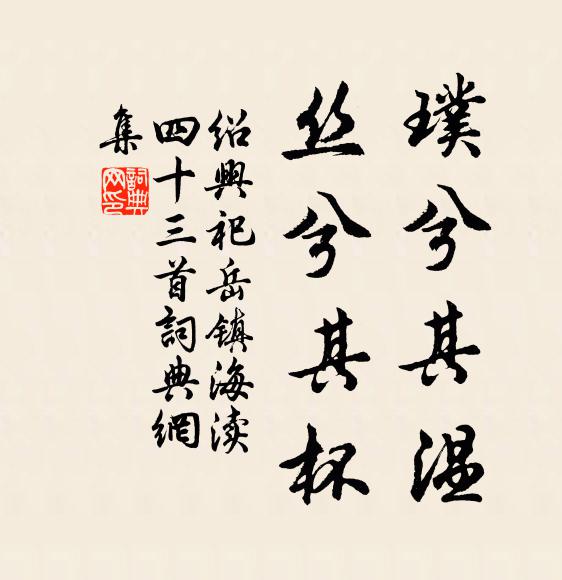 璞兮其温
丝兮其杯
绍興祀岳镇海渎
四十三首詞典網
集
詞典
网印